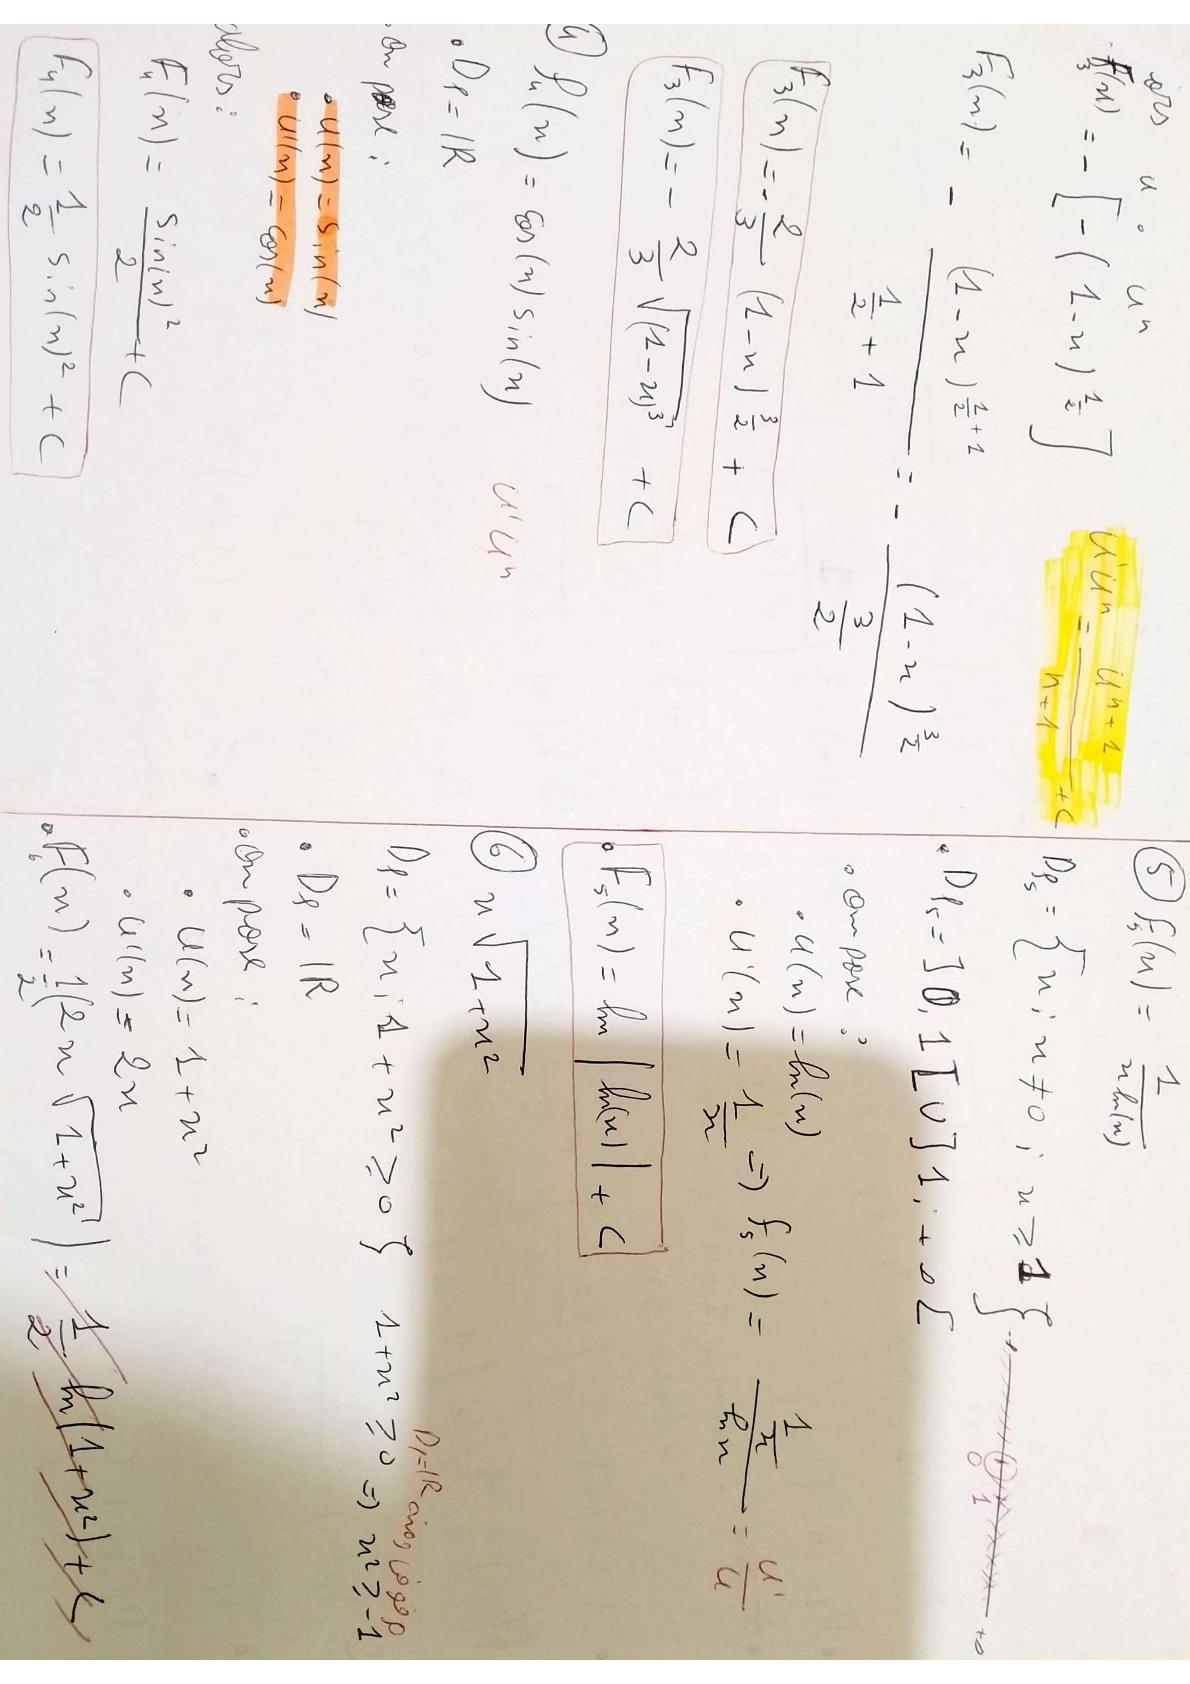 alors
u' · uⁿ
F₃(x) = - [ - (1-x)^{1/2} ]
u'uⁿ = u^{n+1}/(n+1) + C
F₃(x) = - (1-x)^{1/2+1} / (1/2 + 1) = - (1-x)^{3/2} / (3/2)
F₃(x) = - 2/3 (1-x)^{3/2} + C
F₃(x) = - 2/3 √(1-x)³ + C
④ f₄(x) = cos(x) sin(x)
u'uⁿ
• Df = IR
• on pose :
• u(x) = sin(x)
• u'(x) = cos(x)
alors :
F₄(x) = sin(x)²/2 + C
F₄(x) = 1/2 sin(x)² + C
⑤ f₅(x) = 1/(x ln(x))
Df₅ = { x ; x ≠ 0 ; x ≥ 1 }
-∞ 0 1 +∞
• Df₅ = ]0, 1[ ∪ ]1 ; +∞[
• on pose :
• u(x) = ln(x)
• u'(x) = 1/x => f₅(x) = (1/x)/(ln x) = u'/u
• F₅(x) = ln |ln(x)| + C
⑥ x√(1+x²)
Df = { x ; 1 + x² ≥ 0 } 1 + x² ≥ 0 => x² ≥ -1
Df = IR
• Df = IR
• on pose :
• u(x) = 1 + x²
• u'(x) = 2x
• F₆(x) = 1/2 (2x √(1+x²)) = 1/2 ln(1+x²) + C